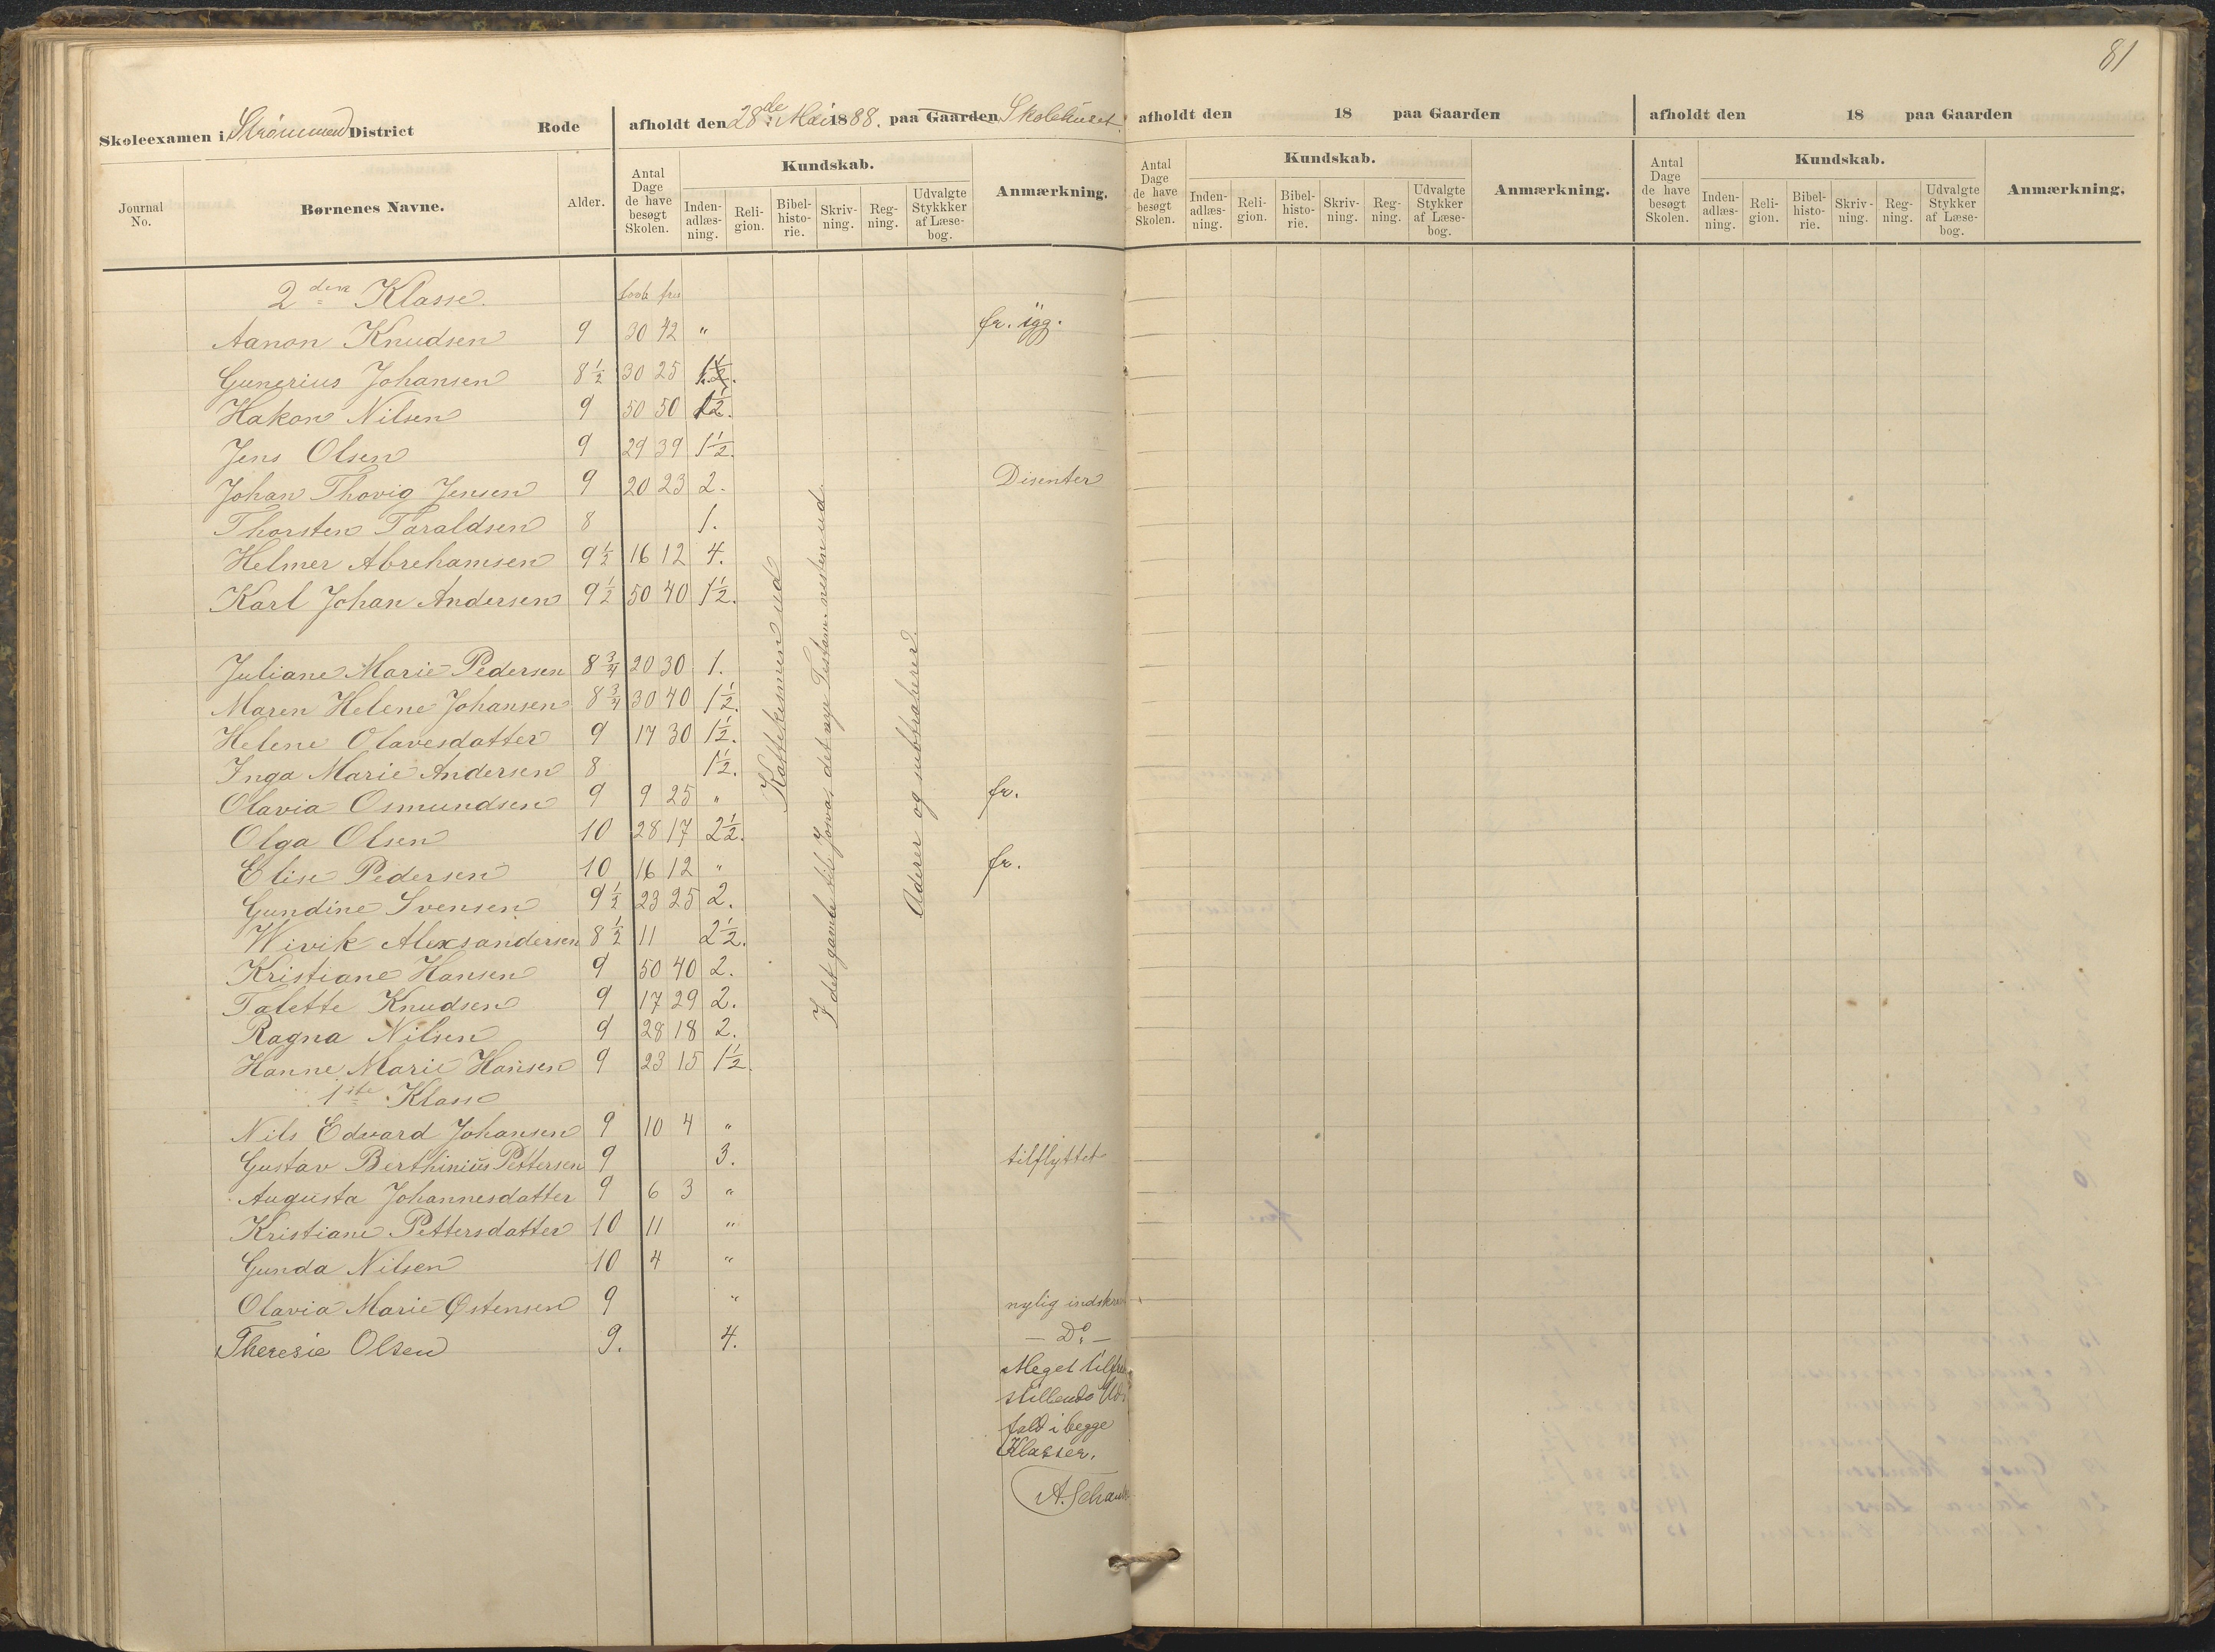 81
Skoleexamen i Strømmen District Rode afholdt den 28de Mai 1888. paa Gaarden Skolehuset.
afholdt den 18 paa Gaarden
afholdt den 18 paa Gaarden
Journal No. Børnenes Navne. Alder. Antal Dage de have besøgt Skolen. Kundskab. Anmærkning.
Indenadlæsning. Religion. Bibelhistorie. Skrivning. Regning. Udvalgte Stykkker af Læsebog.
Antal Dage de have besøgt Skolen. Kundskab. Anmærkning.
Indenadlæsning. Religion. Bibelhistorie. Skrivning. Regning. Udvalgte Stykker af Læsebog.
Antal Dage de have besøgt Skolen. Kundskab. Anmærkning.
Indenadlæsning. Religion. Bibelhistorie. Skrivning. Regning. Udvalgte Stykker af Læsebog.
2den Klasse.
Aanon Knudsen 9 30 42 " fr. sgg.
Gunerius Johansen 8½ 30 25 1½.
Hakon Nilsen 9 50 50 1½.
Jens Olsen 9 29 39 1½.
Johan Thovig Jensen 9 20 23 2. Disenter
Thorsten Taraldsen 8 1.
Helmer Abrehamsen 9½ 16 12 4.
Karl Johan Andersen 9½ 50 40 1½.
Juliane Marie Pedersen 8¾ 20 30 1.
Maren Helene Johansen 8¾ 30 40 1½.
Helene Olavesdatter 9 17 30 1½.
Inga Marie Andersen 8 1½.
Olavia Osmundsen 9 9 25 " fr.
Olga Olsen 10 28 17 2½.
Elise Pedersen 10 16 12 " fr.
Gundine Svensen 9½ 23 25 2.
Wivik Alexsandersen 8½ 11 2½.
Kristiane Hansen 9 50 40 2.
Talette Knudsen 9 17 29 2.
Ragna Nilsen 9 28 18 2.
Hanne Marie Hansen 9 23 15 1½.
Kattekesmen ud
I det gamle til Josva, det nye Testam. nesten ud.
Aderer og subtraherer.
1ste Klasse
Nils Edvard Johansen 9 10 4 "
Gustav Berthinius Pettersen 9 3. tilflyttet
Augusta Johannesdatter 9 6 3 "
Kristiane Pettersdatter 10 11 "
Gunda Nilsen 10 4 "
Olavia Marie Østensen 9 " nylig indskre
Theresie Olsen 9. 4. — Do —
Meget tilfre
stillende Ud-
fald i begge
Klasser.
A. Schan